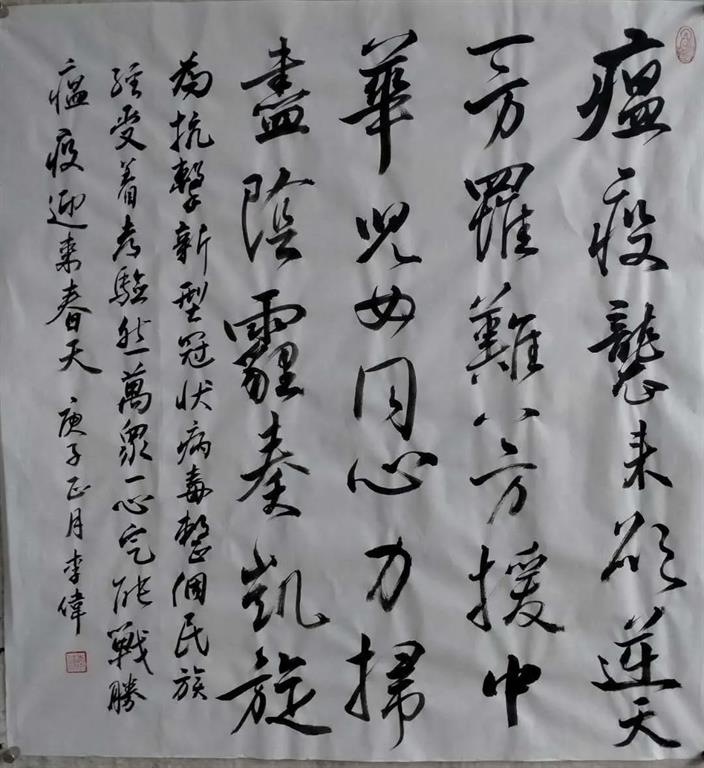 瘟疫襲来欲逆天
一方罹難八方援中
華児女同心力掃
盡陰霾奏凱旋
為抗擊新型冠状病毒整個民族
經受着考驗然萬衆一心定能戰勝
瘟疫迎来春天 庚子正月李偉